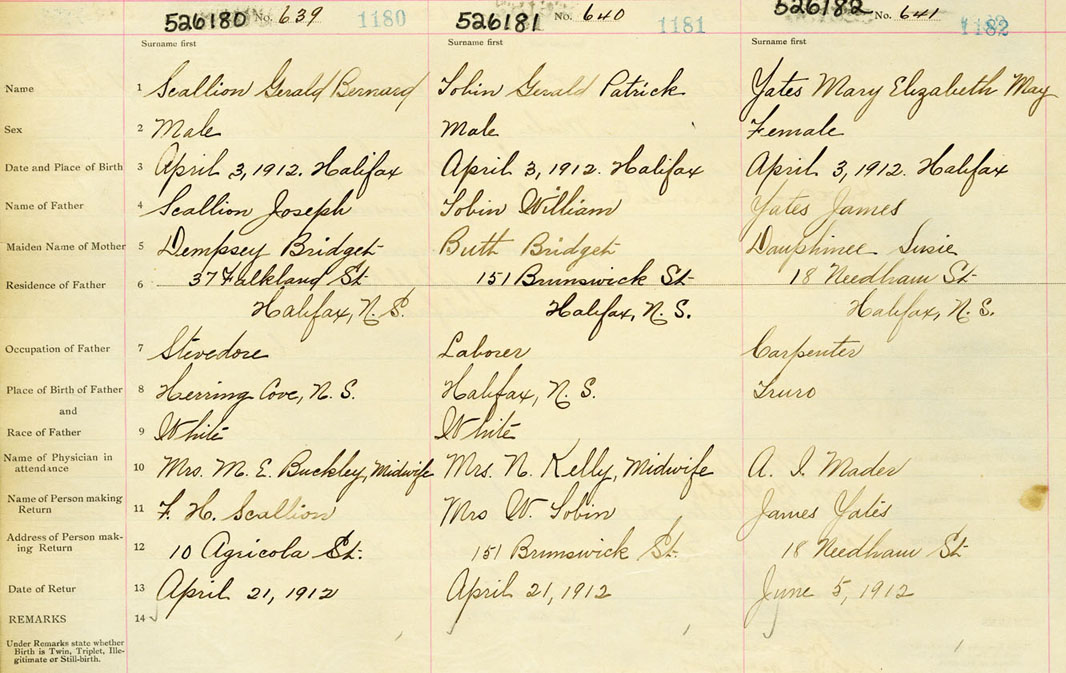 526180 No. 639 1180 526181 No. 640 1181 526182 No. 641 1182
Surname first Surname first Surname first
Name 1 Scallion Gerald Bernard Tobin Gerald Patrick Yates Mary Elizabeth May
Sex 2 Male Male Female
Date and Place of Birth 3 April 3, 1912. Halifax April 3, 1912. Halifax April 3, 1912. Halifax
Name of Father 4 Scallion Joseph Tobin William Yates James
Maiden Name of Mother 5 Dempsey Bridget Buth Bridget Dauphinee Susie
Residence of Father 6 37 Falkland St 151 Brunswick St 18 Needham St
Halifax, N. S. Halifax, N. S. Halifax, N. S.
Occupation of Father 7 Stevedore Laborer Carpenter
Place of Birth of Father 8 Herring Cove, N. S. Halifax, N. S. Truro
and
Race of Father 9 White White
Name of Physician in
attendance 10 Mrs. M. E. Buckley, Midwife Mrs. N. Kelly, Midwife A. I. Mader
Name of Person making
Return 11 F. H. Scallion Mrs W. Tobin James Yates
Address of Person mak-
ing Return 12 10 Agricola St. 151 Brunswick St. 18 Needham St
Date of Retur 13 April 21, 1912 April 21, 1912 June 5, 1912
REMARKS 14
Under Remarks state whether
Birth is Twin, Triplet, Ille-
gitimate or Still-birth.